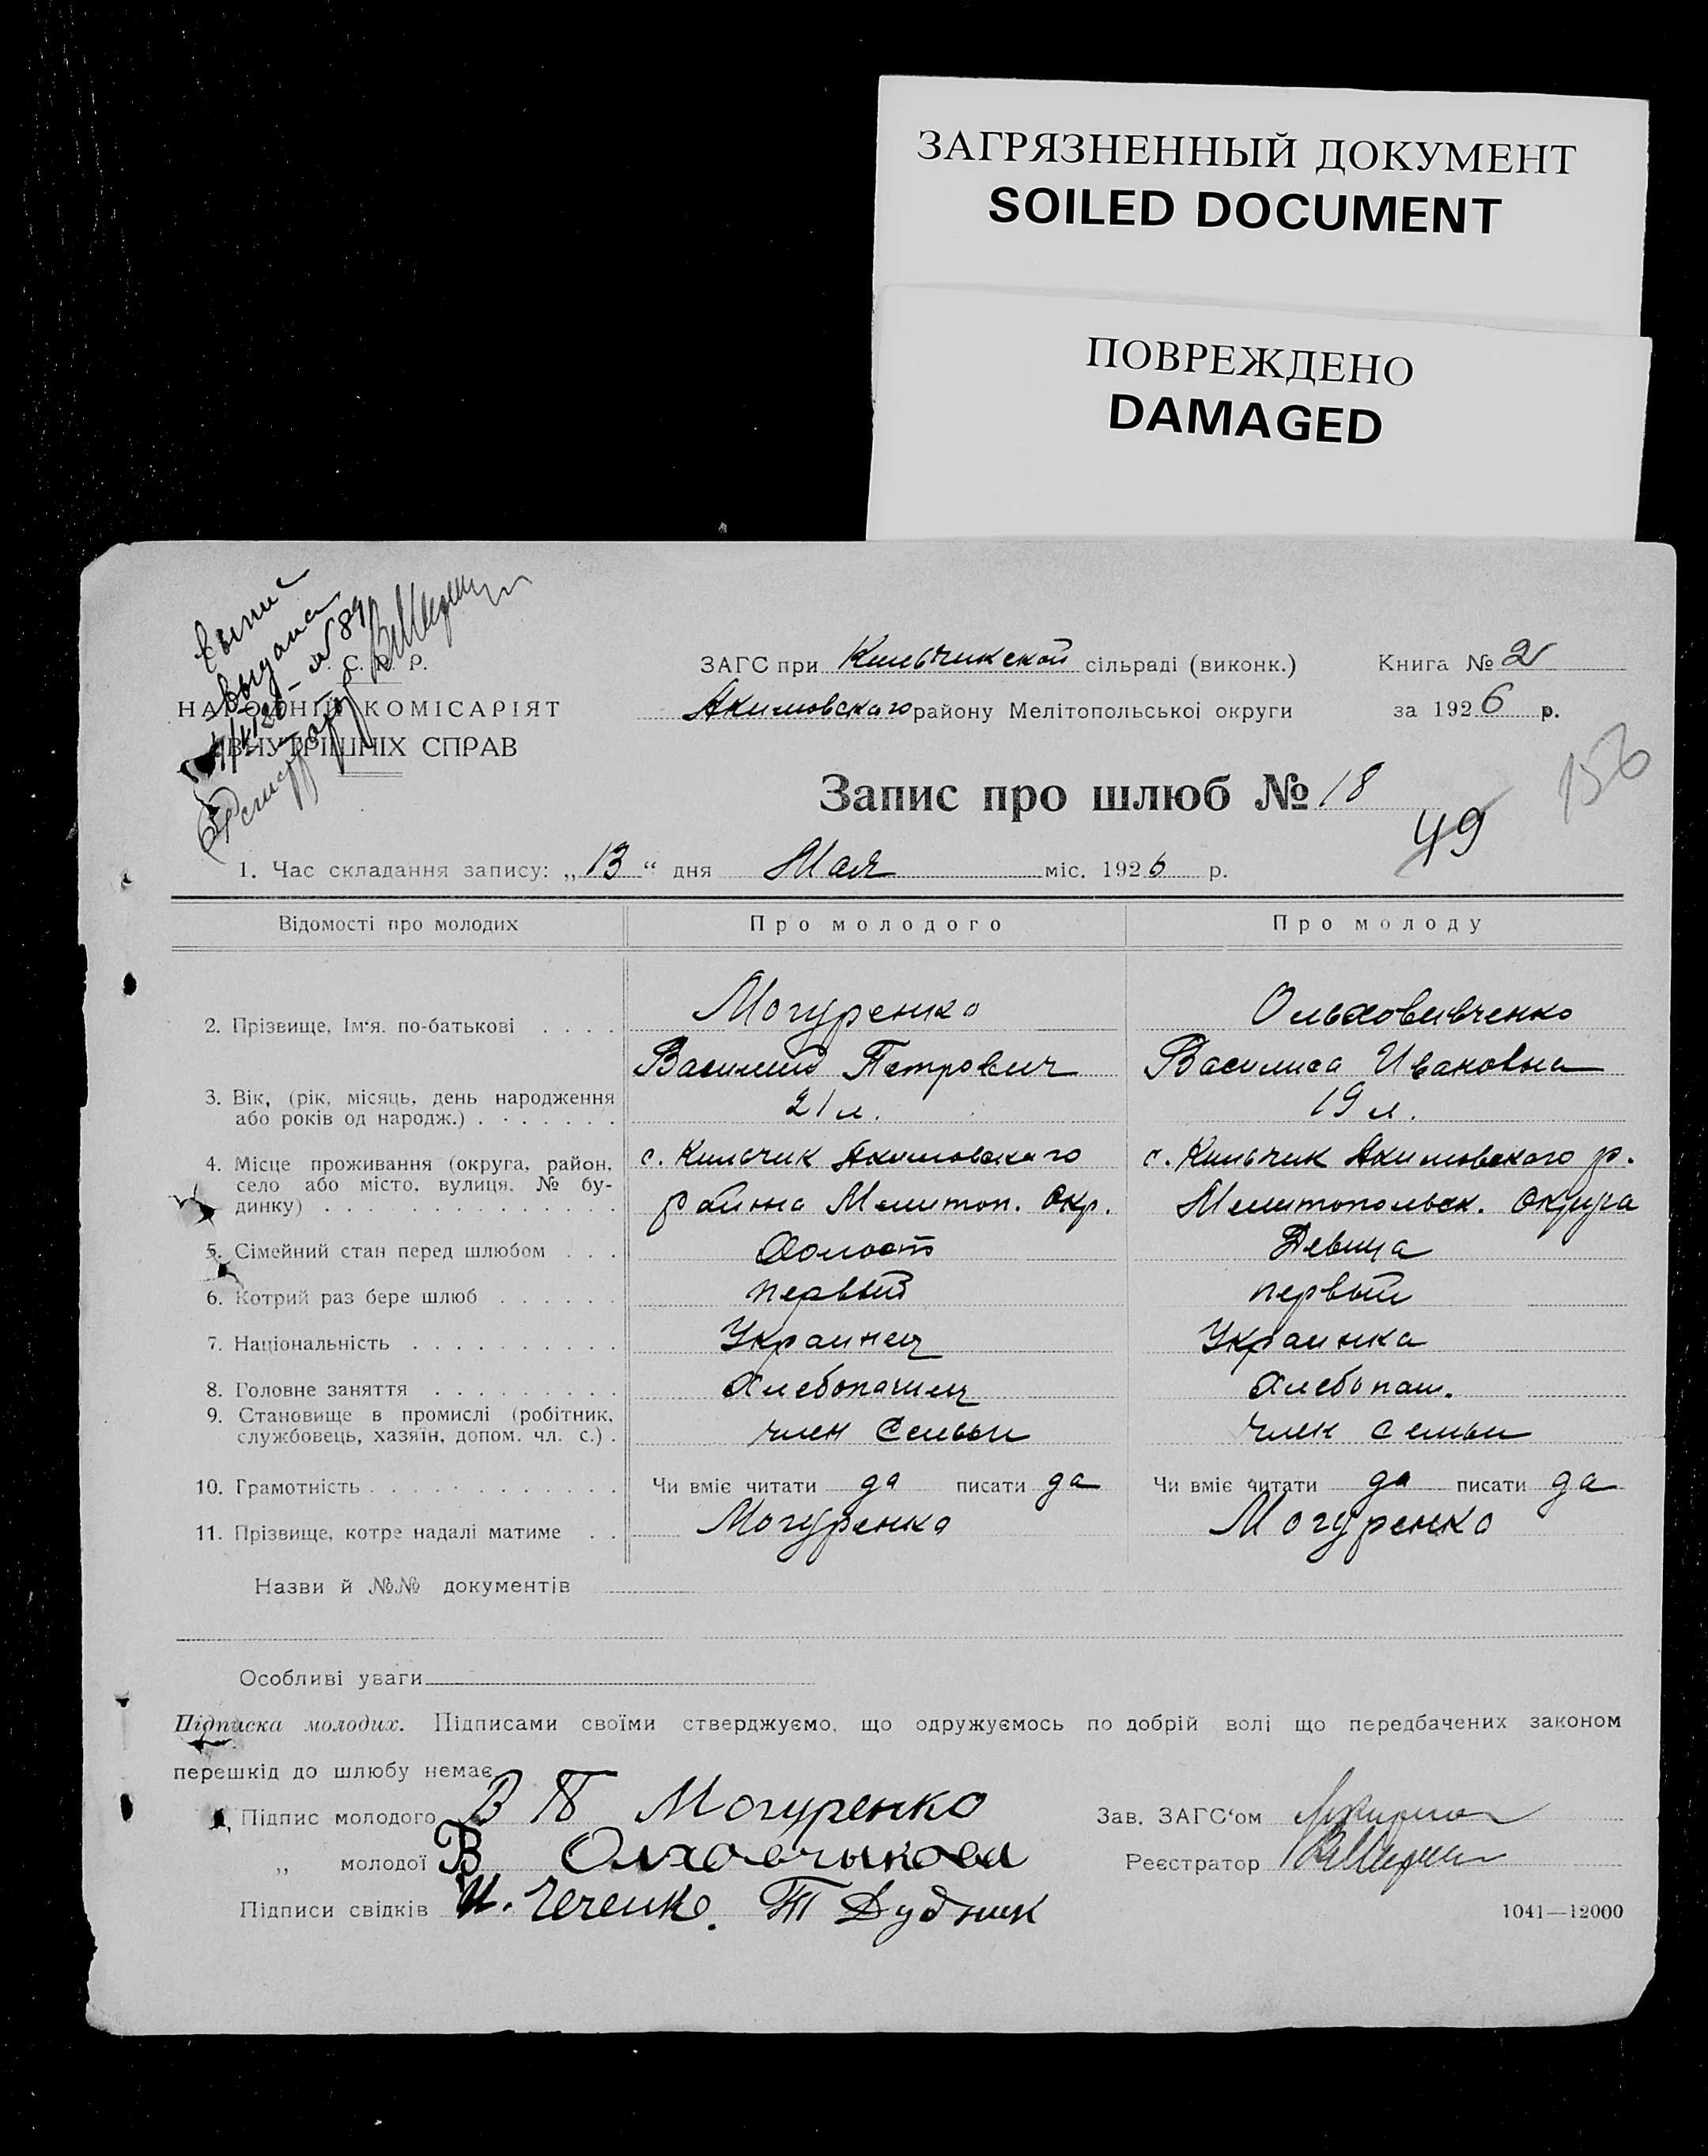 ЗАГРЯЗНЕННЫЙ ДОКУМЕНТ
SOILED DOCUMENT
ПОВРЕЖДЕНО
DAMAGED
выдана
№ 89
С. Р. Р.
НАРОДНІЙ КОМІСАРІЯТ
ВНУТРІШНІХ СПРАВ
ЗАГС при Кильчикской сільраді (виконк.) Книга № 2
Акимовского району Мелітопольської округи за 1926 р.
Запис про шлюб № 18
156
49
1. Час складання запису: „13“ дня Мая міс. 1926 р.
Відомості про молодих Про молодого Про молоду
2. Прізвище, Ім‘я, по-батькові . . . . Могуренко Ольховивченко
Василий Петрович Василиса Ивановна
3. Вік, (рік, місяць, день народження
або років од народж.) . . . . . . . 21 л. 19 л.
4. Місце проживання (округа, район, с. Кильчик Акимовского с. Кильчик Акимовского р.
село або місто, вулиця, № бу-
динку) . . . . . . . . . . . . . . района Мелитоп. Окр. Мелитопольск. Округа
5. Сімейний стан перед шлюбом . . . Холост Девица
6. Котрий раз бере шлюб . . . . . . первый первый
7. Національність . . . . . . . . . . Украинец Украинка
8. Головне заняття . . . . . . . . . Хлебопашец Хлебопаш.
9. Становище в промислі (робітник,
службовець, хазяїн, допом. чл. с.) . член Семьи член семьи
10. Грамотність . . . . . . . . . . . . Чи вміє читати да писати да Чи вміє читати да писати да
11. Прізвище, котре надалі матиме . . Могуренко Могуренко
Назви й №№ документів
Особливі уваги
Підписка молодих. Підписами своїми стверджуємо, що одружуємось по добрій волі що передбачених законом
перешкід до шлюбу немає
Підпис молодого В П Могуренко Зав. ЗАГС‘ом
„ молодої В Реєстратор
Підписи свідків И. Чеченко. Т Дудник
1041—12000